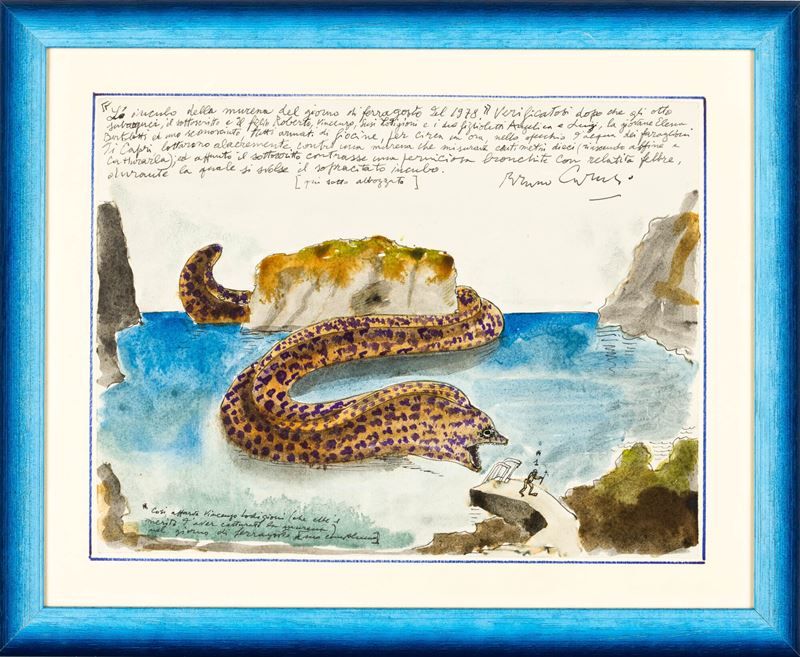 "L'incubo della murena del giorno di ferragosto del 1978." Verificatosi dopo che gli otto
subacquei, il sottoscritto e il figlio Roberto, Vincenzo, e i due figlioletti Angelica e Luigi, la giovane Elena
ed uno sconosciuto tutti armati di fiocine per circa un'ora nello specchio d'acqua dei faraglioni
di Capri lottarono alacremente contro una murena che misurava centimetri dieci (riuscendo affine a
catturarla) ed appunto il sottoscritto contrasse una perniciosa bronchite con relativa febbre,
durante la quale si svolse il sopracitato incubo.
[più sotto abbozzato]
Bruno
* Così afferma Vincenzo (che ebbe il
merito d'aver catturato la murena)
nel giorno di ferragosto